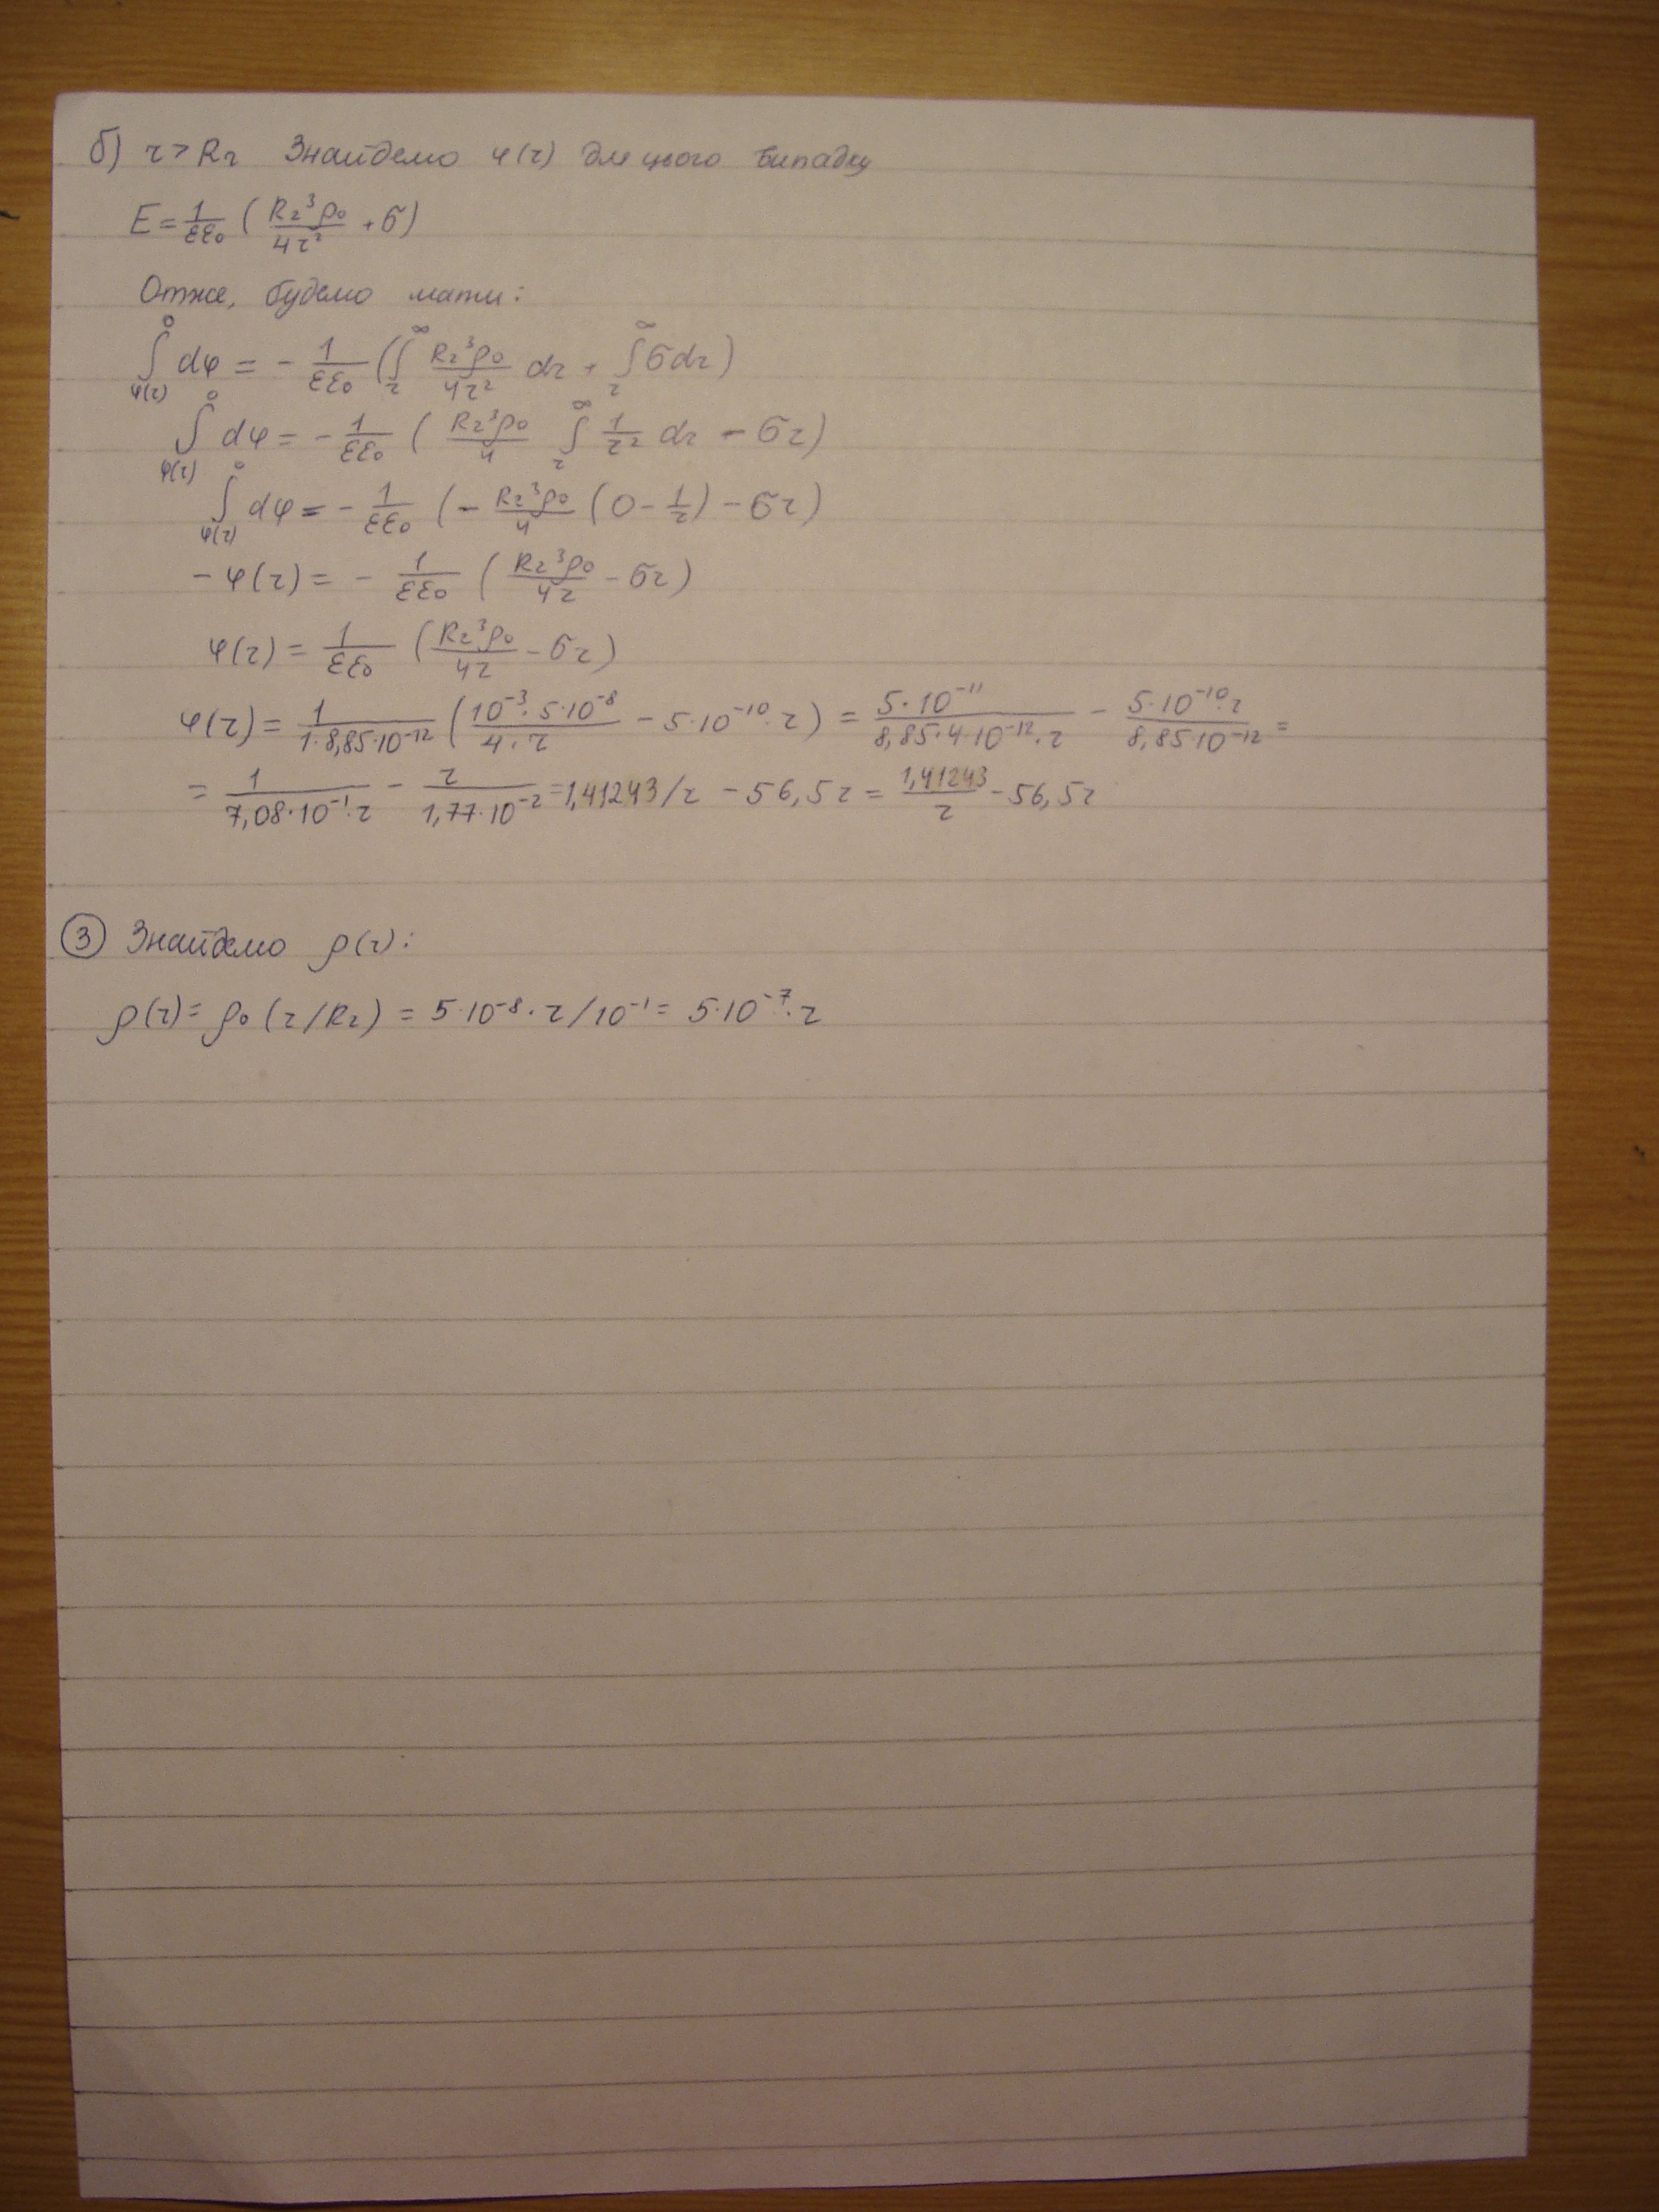 б) r > R₂ Знайдемо φ(r) для цього випадку
E = 1/εε₀ (R₂³ρ₀/4r² + σ)
Отже, будемо мати:
∫_{φ(r)}^{0} dφ = - 1/εε₀ (∫_{r}^{∞} R₂³ρ₀/4r² dr + ∫_{r}^{∞} σdr)
∫_{φ(r)}^{0} dφ = - 1/εε₀ (R₂³ρ₀/4 ∫_{r}^{∞} 1/r² dr - σr)
∫_{φ(r)}^{0} dφ = - 1/εε₀ (- R₂³ρ₀/4 (0 - 1/r) - σr)
- φ(r) = - 1/εε₀ (R₂³ρ₀/4r - σr)
φ(r) = 1/εε₀ (R₂³ρ₀/4r - σr)
φ(r) = 1/1·8,85·10⁻¹² (10⁻³·5·10⁻⁸/4·r - 5·10⁻¹⁰·r) = 5·10⁻¹¹/8,85·4·10⁻¹²·r - 5·10⁻¹⁰·r/8,85·10⁻¹² =
= 1/7,08·10⁻¹·r - r/1,77·10⁻² = 1,41243/r - 56,5r = 1,41243/r - 56,5r
③ Знайдемо ρ(r):
ρ(r) = ρ₀(r/R₂) = 5·10⁻⁸·r/10⁻¹ = 5·10⁻⁷·r